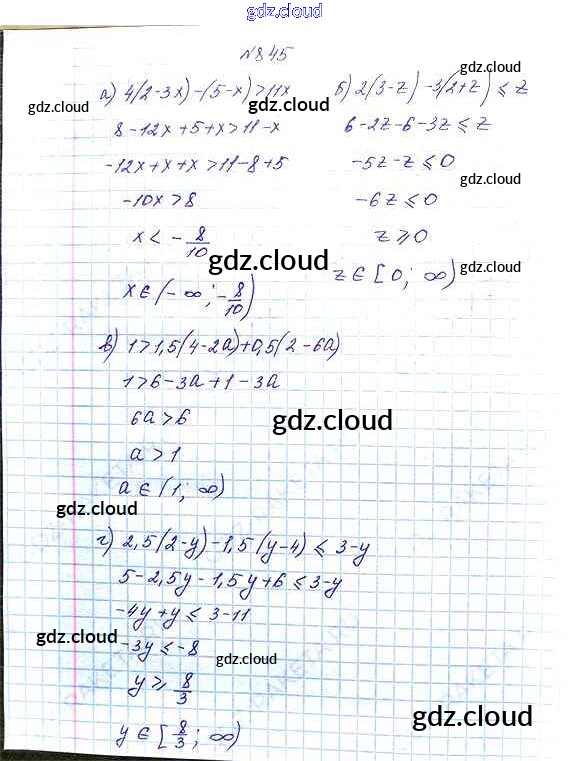 gdz.cloud
№845
gdz.cloud
gdz.cloud
а) 4(2-3x)-(5-x)>11x
б) 2(3-z)-3(2+z)≤z
gdz.cloud
8-12x+5+x>11-x
6-2z-6-3z≤z
-12x+x+x>11-8+5
-5z-z≤0
-10x>8
-6z≤0
gdz.cloud
x<-8/10
z≥0
gdz.cloud
z∈[0; ∞)
x∈(-∞; -8/10)
в) 1>1,5(4-2a)+0,5(2-6a)
1>6-3a+1-3a
6a>6
gdz.cloud
a>1
a∈(1; ∞)
gdz.cloud
г) 2,5(2-y)-1,5(y-4)≤3-y
5-2,5y-1,5y+6≤3-y
-4y+y≤3-11
gdz.cloud
-3y≤-8
gdz.cloud
y≥8/3
gdz.cloud
y∈[8/3; ∞)